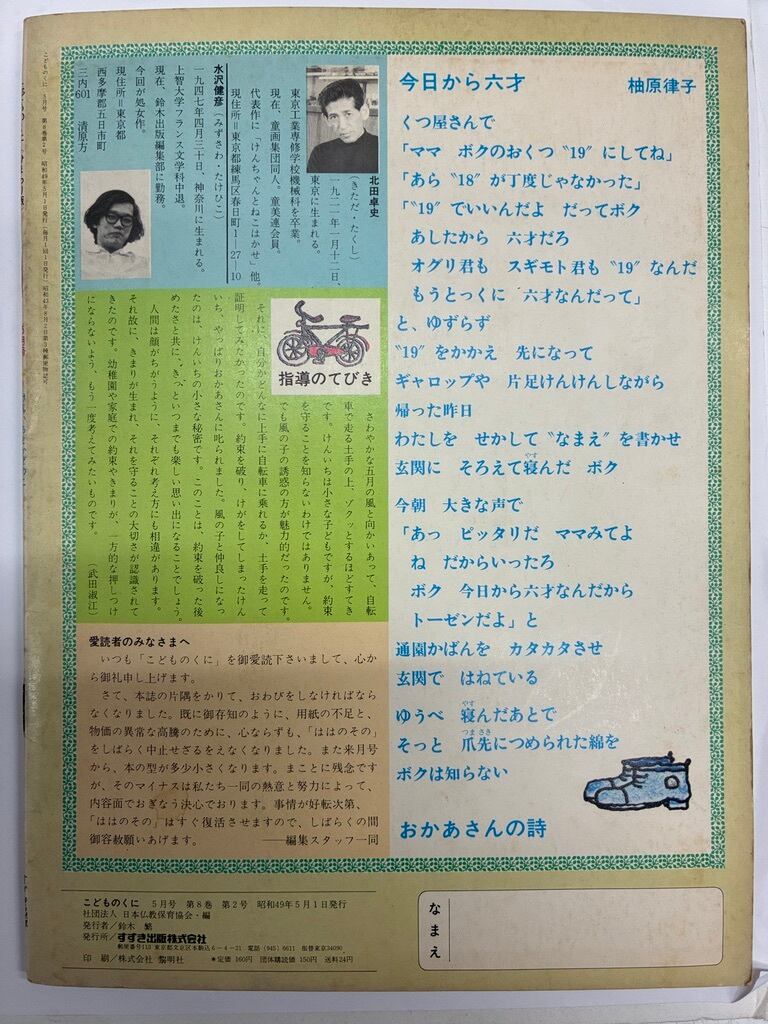 今日から六才　柚原律子
くつ屋さんで
「ママ　ボクのおくつ〝19〟にしてね」
「あら〝18〟が丁度じゃなかった」
「〝19〟でいいんだよ　だってボク
あしたから　六才だろ
オグリ君も　スギモト君も〝19〟なんだ
もうとっくに　六才なんだって」
と、ゆずらず
〝19〟をかかえ　先になって
ギャロップや　片足けんけんしながら
帰った昨日
わたしを　せかして〝なまえ〟を書かせ
玄関に　そろえて寝んだ　ボク
今朝　大きな声で
「あっ　ピッタリだ　ママみてよ
ね　だからいったろ
ボク　今日から六才なんだから
トーゼンだよ」と
通園かばんを　カタカタさせ
玄関で　はねている
ゆうべ　寝んだあとで
そっと　爪先につめられた綿を
ボクは知らない
おかあさんの詩
北田卓史
（きただ・たくし）
一九二一年一月十二日、
東京に生まれる。
東京工業専修学校機械科を卒業。
現在、童画集団同人。童美連会員。
代表作に「けんちゃんとねこはかせ」他。
現住所＝東京都練馬区春日町1―27―10
水沢健彦（みずさわ・たけひこ）
一九四七年四月三十日、神奈川に生まれる。
上智大学フランス文学科中退。
現在、鈴木出版編集部に勤務。
今回が処女作。
現住所＝東京都
西多摩郡五日市町
三内601　清原方
指導のてびき
さわやかな五月の風と向かいあって、自転
車で走る土手の上、ゾクッとするほどすてき
です。けんいちは小さな子どもですが、約束
を守ることを知らないわけではありません。
でも風の子の誘惑の方が魅力的だったのです。
それに、自分がどんなに上手に自転車に乗れるか、土手を走って
証明してみたかったのです。約束を破り、けがをしてしまったけん
いち、やっぱりおかあさんに叱られました。風の子と仲良しになっ
たのは、けんいちの小さな秘密です。このことは、約束を破った後
めたさと共に、きっといつまでも楽しい思い出になることでしょう。
人間は顔がちがうように、それぞれ考え方にも相違があります。
それ故に、きまりが生まれ、それを守ることの大切さが認識されて
きたのです。幼稚園や家庭での約束やきまりが、一方的な押しつけ
にならないよう、もう一度考えてみたいものです。　（武田淑江）
愛読者のみなさまへ
いつも「こどものくに」を御愛読下さいまして、心か
ら御礼申し上げます。
さて、本誌の片隅をかりて、おわびをしなければなら
なくなりました。既に御存知のように、用紙の不足と、
物価の異常な高騰のために、心ならずも、「ははのその」
をしばらく中止せざるをえなくなりました。また来月号
から、本の型が多少小さくなります。まことに残念です
が、そのマイナスは私たち一同の熱意と努力によって、
内容面でおぎなう決心でおります。事情が好転次第、
「ははのその」はすぐ復活させますので、しばらくの間
御容赦願いあげます。　――編集スタッフ一同
こどものくに　5月号　第8巻　第2号　昭和49年5月1日発行
社団法人　日本仏教保育協会・編
発行者／鈴木　繁
発行所／すずき出版株式会社
郵便番号113　東京都文京区本駒込6－4－21　電話（945）6611　振替東京34090
印　刷／株式会社　黎明社　＊定価　160円　団体購読価　150円　送料24円
なまえ
こどものくに　5月号　第8巻第2号　昭和49年5月1日発行（毎月1回1日発行）昭和43年8月2日第3種郵便物認可